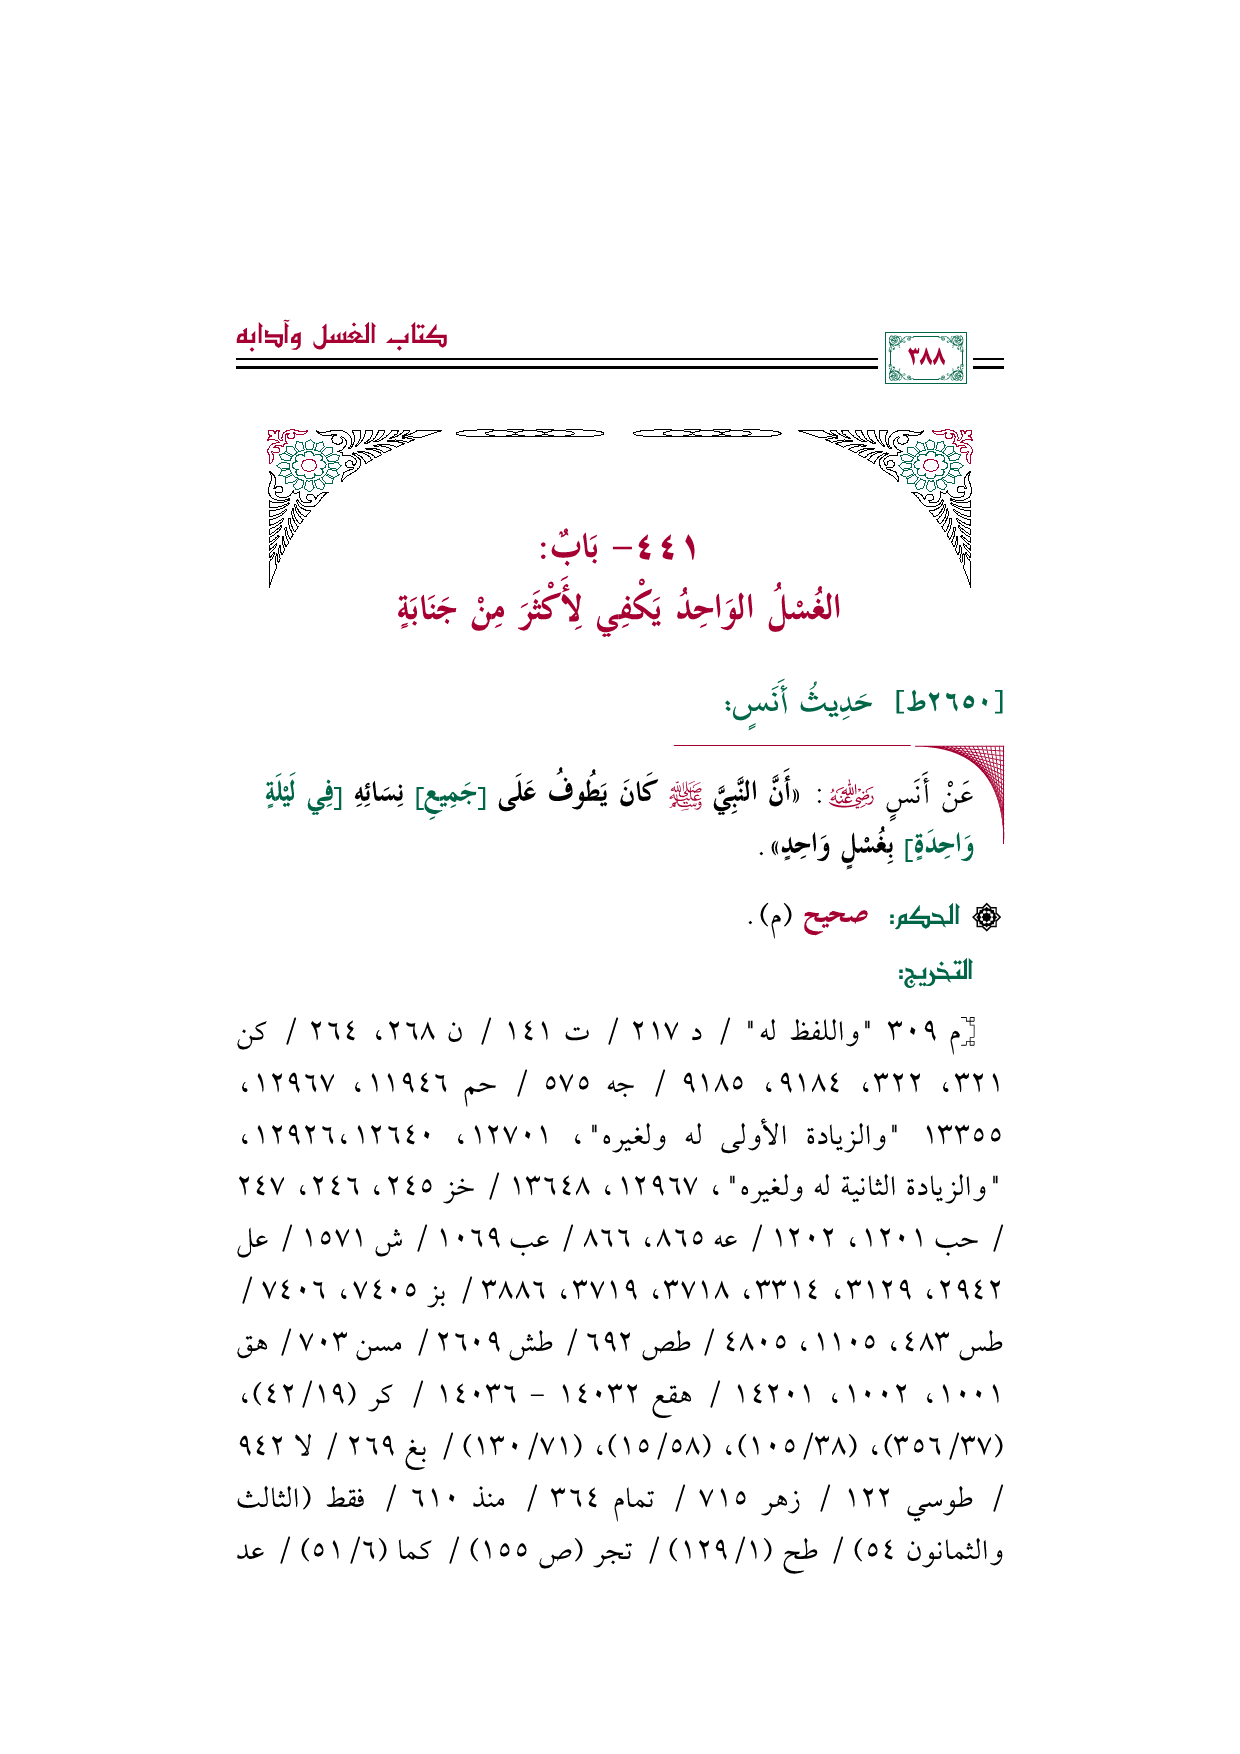 كتاب الغسل وآدابه
٣٨٨
٤٤١- بَابٌ:
الغُسْلُ الوَاحِدُ يَكْفِي لِأَكْثَرَ مِنْ جَنَابَةٍ
[٢٦٥٠ط] حَدِيثُ أَنَسٍ:
عَنْ أَنَسٍ رضي الله عنه: «أَنَّ النَّبِيَّ ﷺ كَانَ يَطُوفُ عَلَى [جَمِيعِ] نِسَائِهِ [فِي لَيْلَةٍ
وَاحِدَةٍ] بِغُسْلٍ وَاحِدٍ».
الحكم: صحيح (م).
التخريج:
[م ٣٠٩ "واللفظ له" / د ٢١٧ / ت ١٤١ / ن ٢٦٨، ٢٦٤ / كن
٣٢١، ٣٢٢، ٩١٨٤، ٩١٨٥ / جه ٥٧٥ / حم ١١٩٤٦، ١٢٩٦٧،
١٣٣٥٥ "والزيادة الأولى له ولغيره"، ١٢٧٠١، ١٢٦٤٠،١٢٩٢٦،
"والزيادة الثانية له ولغيره"، ١٢٩٦٧، ١٣٦٤٨ / خز ٢٤٥، ٢٤٦، ٢٤٧
/ حب ١٢٠١، ١٢٠٢ / عه ٨٦٥، ٨٦٦ / عب ١٠٦٩ / ش ١٥٧١ / عل
٢٩٤٢، ٣١٢٩، ٣٣١٤، ٣٧١٨، ٣٧١٩، ٣٨٨٦ / بز ٧٤٠٥، ٧٤٠٦ /
طس ٤٨٣، ١١٠٥، ٤٨٠٥ / طص ٦٩٢ / طش ٢٦٠٩ / مسن ٧٠٣ / هق
١٠٠١، ١٠٠٢، ١٤٢٠١ / هقع ١٤٠٣٢ - ١٤٠٣٦ / كر (١٩/ ٤٢)،
(٣٧/ ٣٥٦)، (٣٨/ ١٠٥)، (٥٨/ ١٥)، (٧١/ ١٣٠) / بغ ٢٦٩ / لا ٩٤٢
/ طوسي ١٢٢ / زهر ٧١٥ / تمام ٣٦٤ / منذ ٦١٠ / فقط (الثالث
والثمانون ٥٤) / طح (١/ ١٢٩) / تجر (ص ١٥٥) / كما (٦/ ٥١) / عد